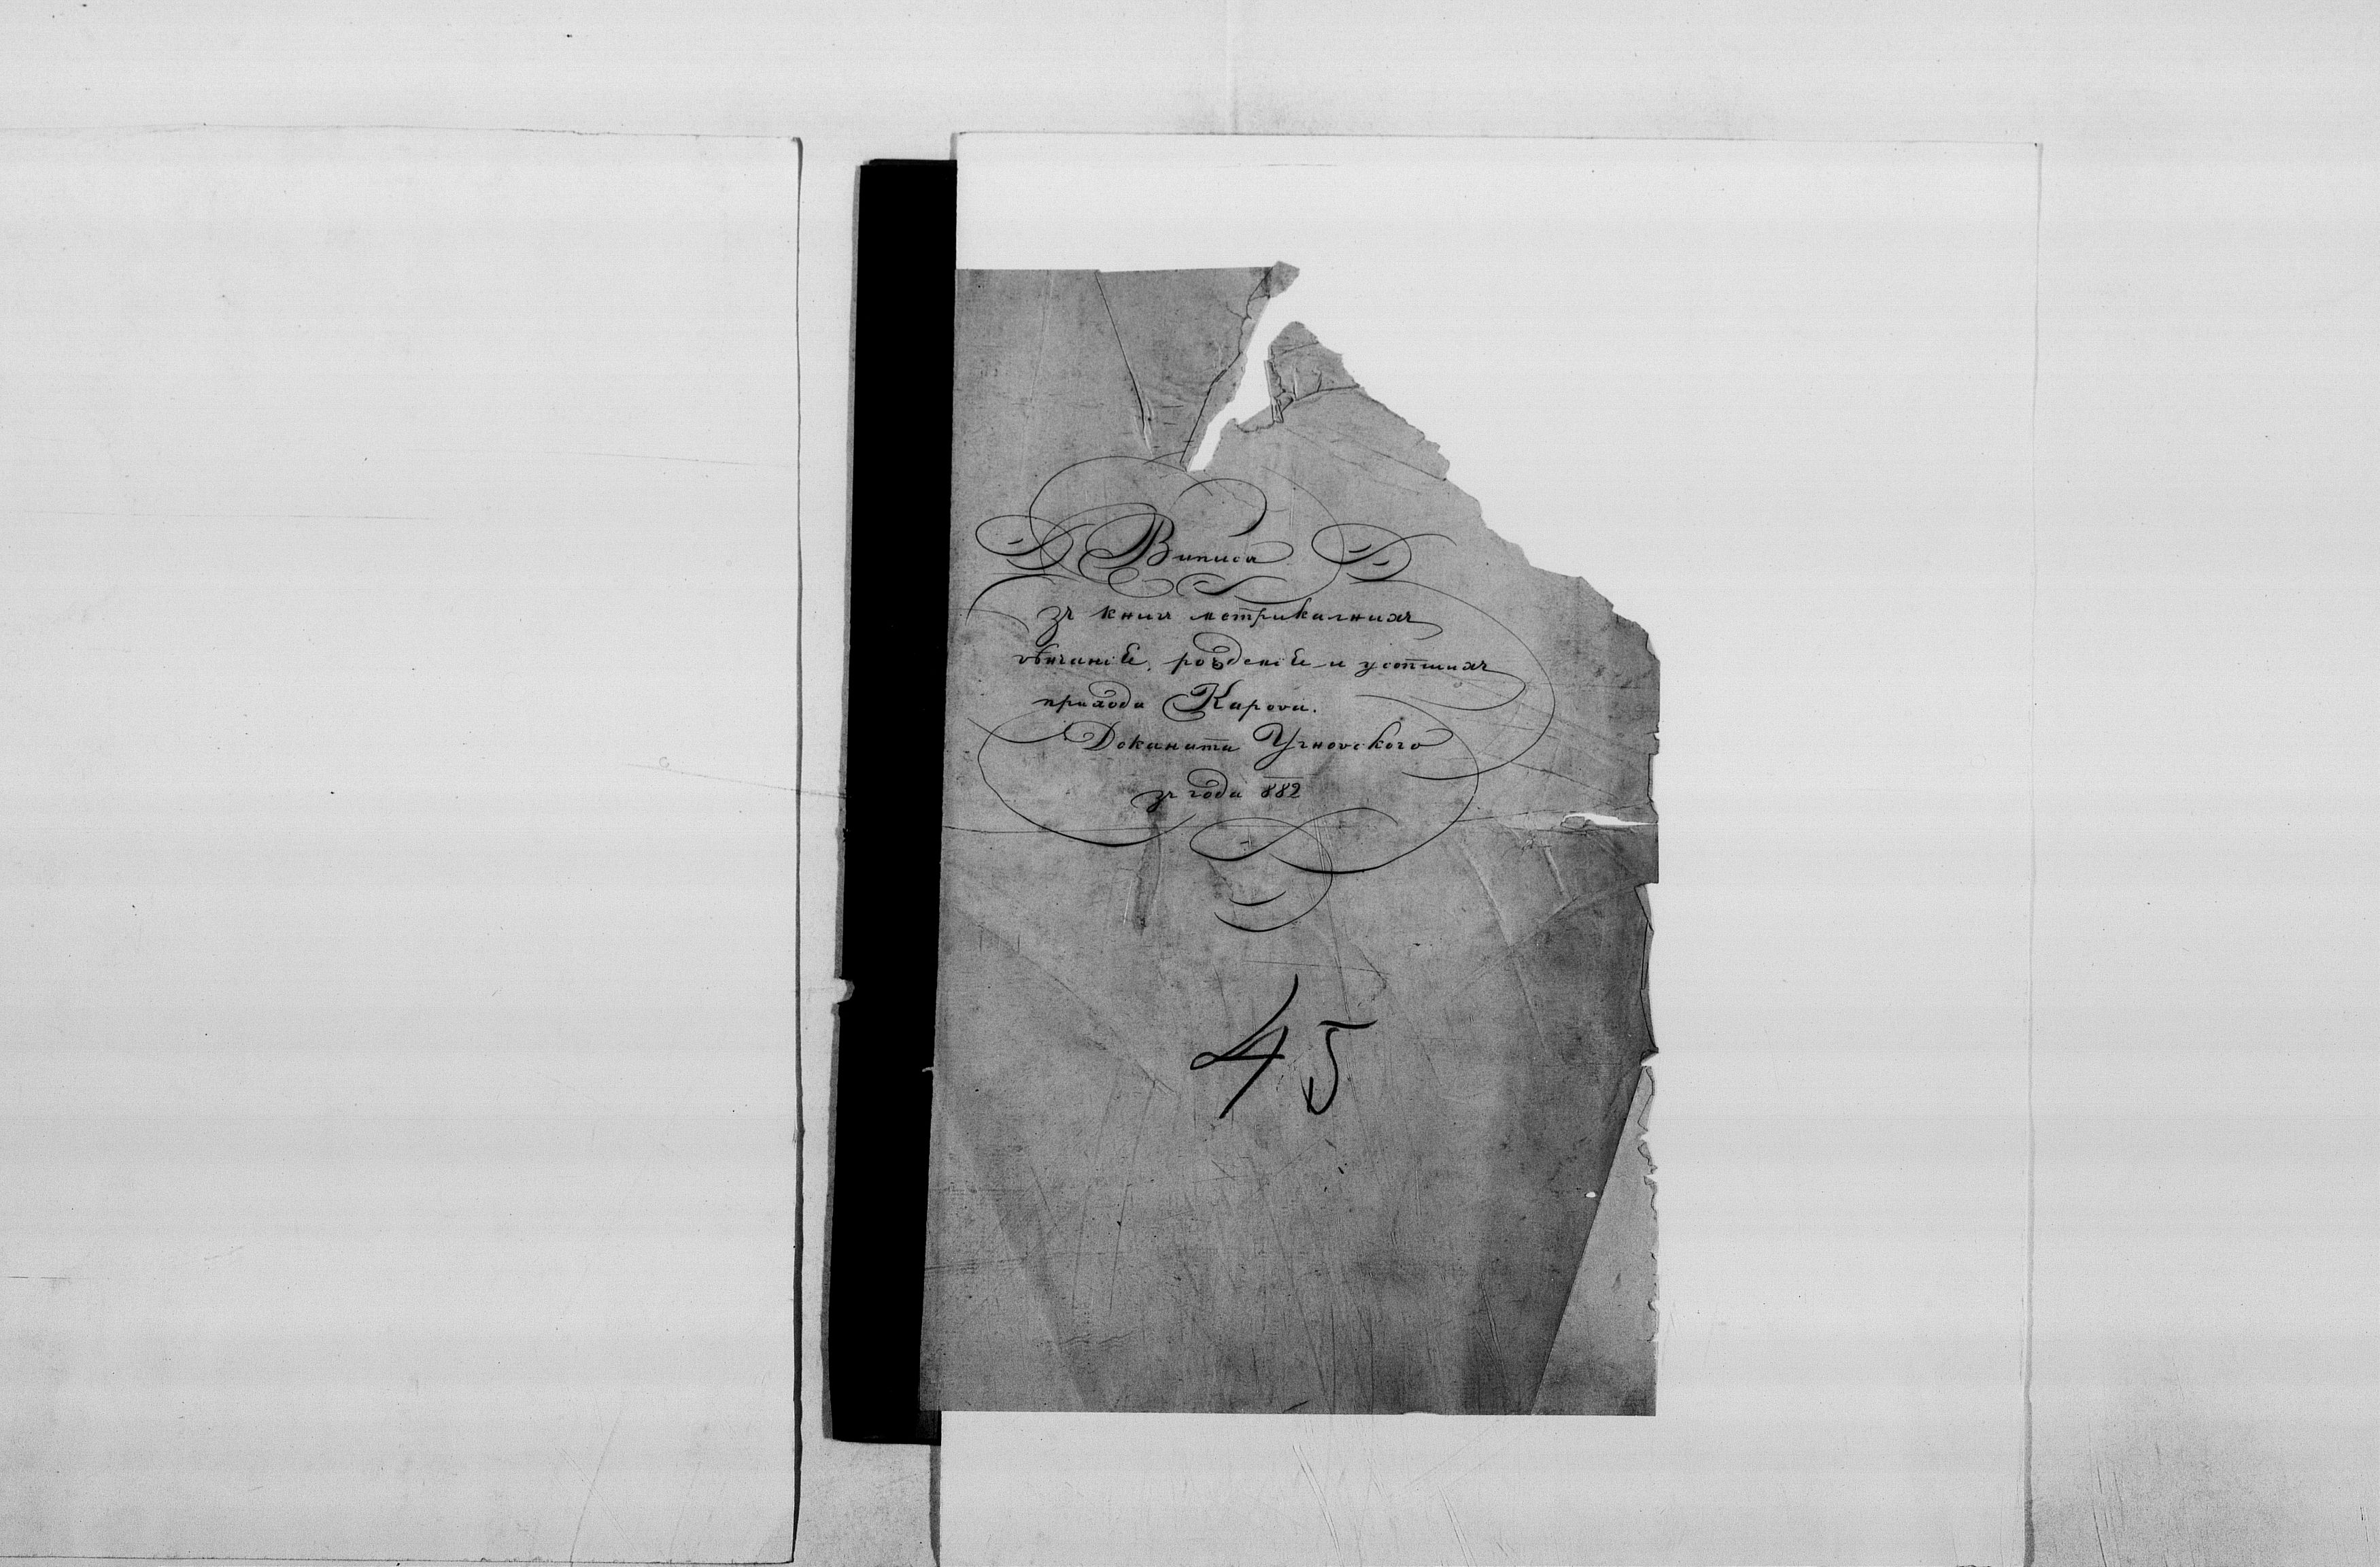 Виписъ
зъ книгъ метрикалнихъ
вѣнчаніє, рождєніє и усопшихъ
прихода Карова.
Деканата Угновского
зъ года 882
45